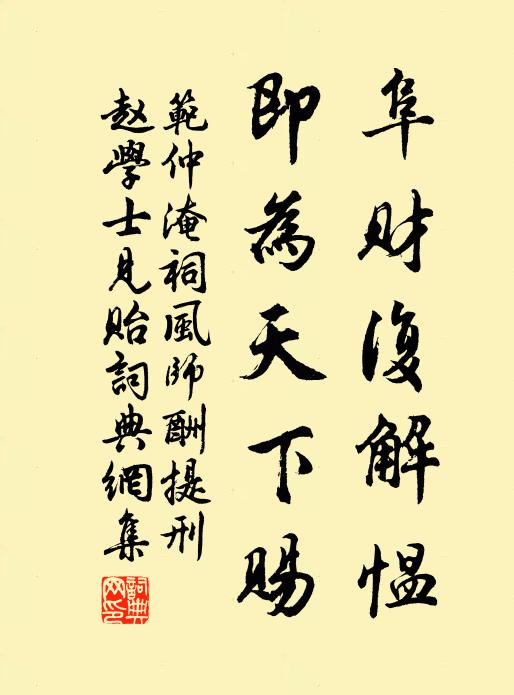 阜财復解愠
即為天下賜
範仲淹祠風師酬提刑
赵學士見貽詞典網集